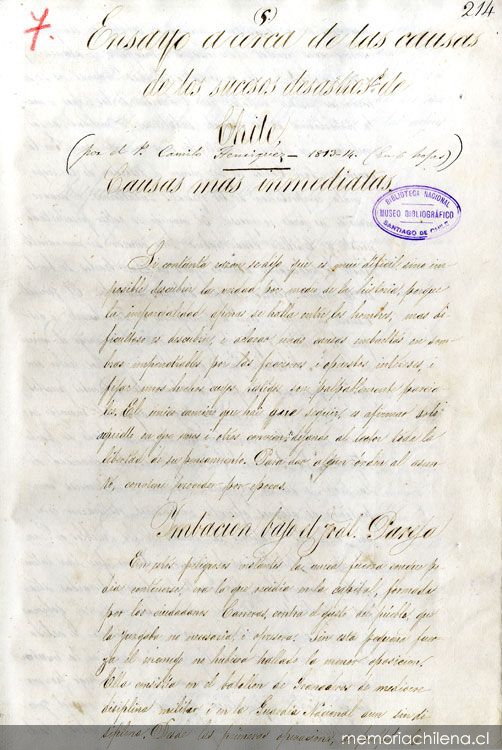 7.
(5)
214
Ensayo acerca de las causas
de los sucesos desastros. de
Chile,
(por el P. Camilo Henriquez – 1813-14. (en 6 hojas)
Causas mas inmediatas.
BIBLIOTECA NACIONAL
MUSEO BIBLIOGRÁFICO
SANTIAGO DE CHILE
Si con tanta razon se dijo que es mui dificil sino im-
posible descubrir la verdad por medio de la historia, porque
la imparcialidad apenas se halla entre los hombres, mas di-
ficultoso es descubrir, i aclarar unas causas envueltas en som-
bras impenetrables por los furores i opuestos intereses, i
fijar unos hechos cuyos testigos son palpablemente parcia-
les. El único camino que hai para seguir, es afirmar solo
aquello en que unos i otros convienen, dejando al lector toda la
libertad de su pensamiento. Para dar algun órden al asun-
to, conviene proceder por épocas.
Imbacion bajo el jral. Pareja
En tan peligrosos instantes la unica fuerza con que po-
dia contarse, era la que residia en la capital, formada
por los ciudadanos Carreras, contra el gusto del pueblo, que
la juzgaba no necesaria, i opresora. Sin esta pequeña fuer-
za el enemigo no habria hallado la menor oposicion.
Ella consistia en el batallon de Granaderos de mediocre
disciplina militar i en la Guardia Nacional aun sin di-
sciplina. Desde las primeras operaciones,
www.memoriachilena.cl